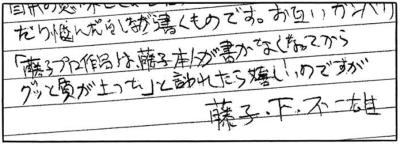 たり悩んだりしながら漫くものです。お互いガンバり
「藤子プロ作品は、藤子本人が書かなくなってから
グッと質が上った」と言われたら嬉しいのですが
藤子・F・不二雄